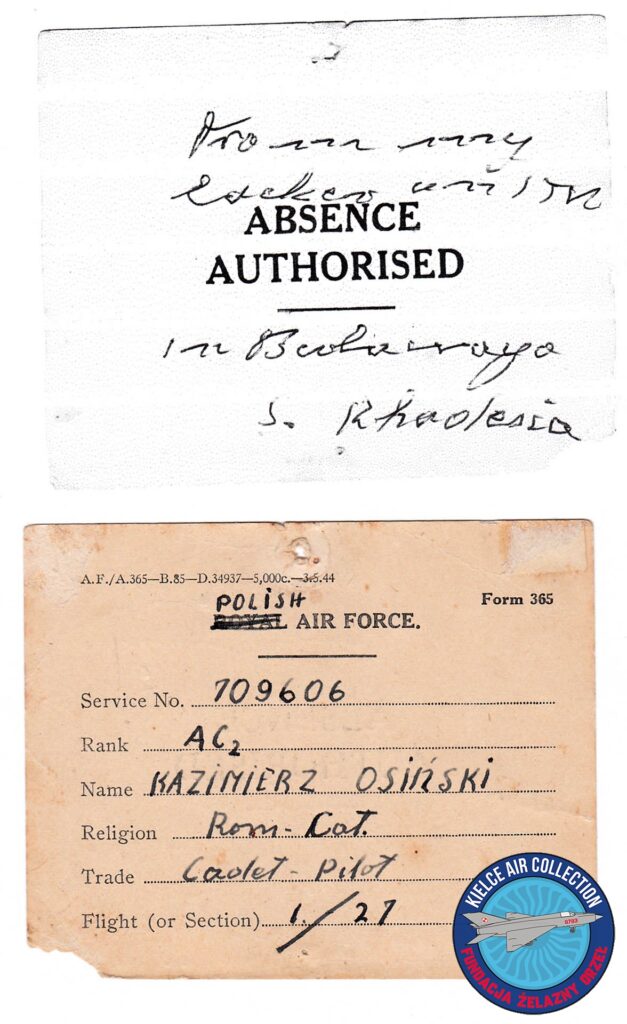 From my
locker
ABSENCE
AUTHORISED
in Bulawayo
S. Rhodesia
A.F./A.365—B.85—D.34937—5,000c.—3.5.44
Form 365
POLISH
ROYAL AIR FORCE.
Service No. 709606
Rank AC2
Name KAZIMIERZ OSIŃSKI
Religion Rom-Cat.
Trade Cadet-Pilot
Flight (or Section) 1./27
KIELCE AIR COLLECTION
0703
FUNDACJA ŻELAZNY ORZEŁ